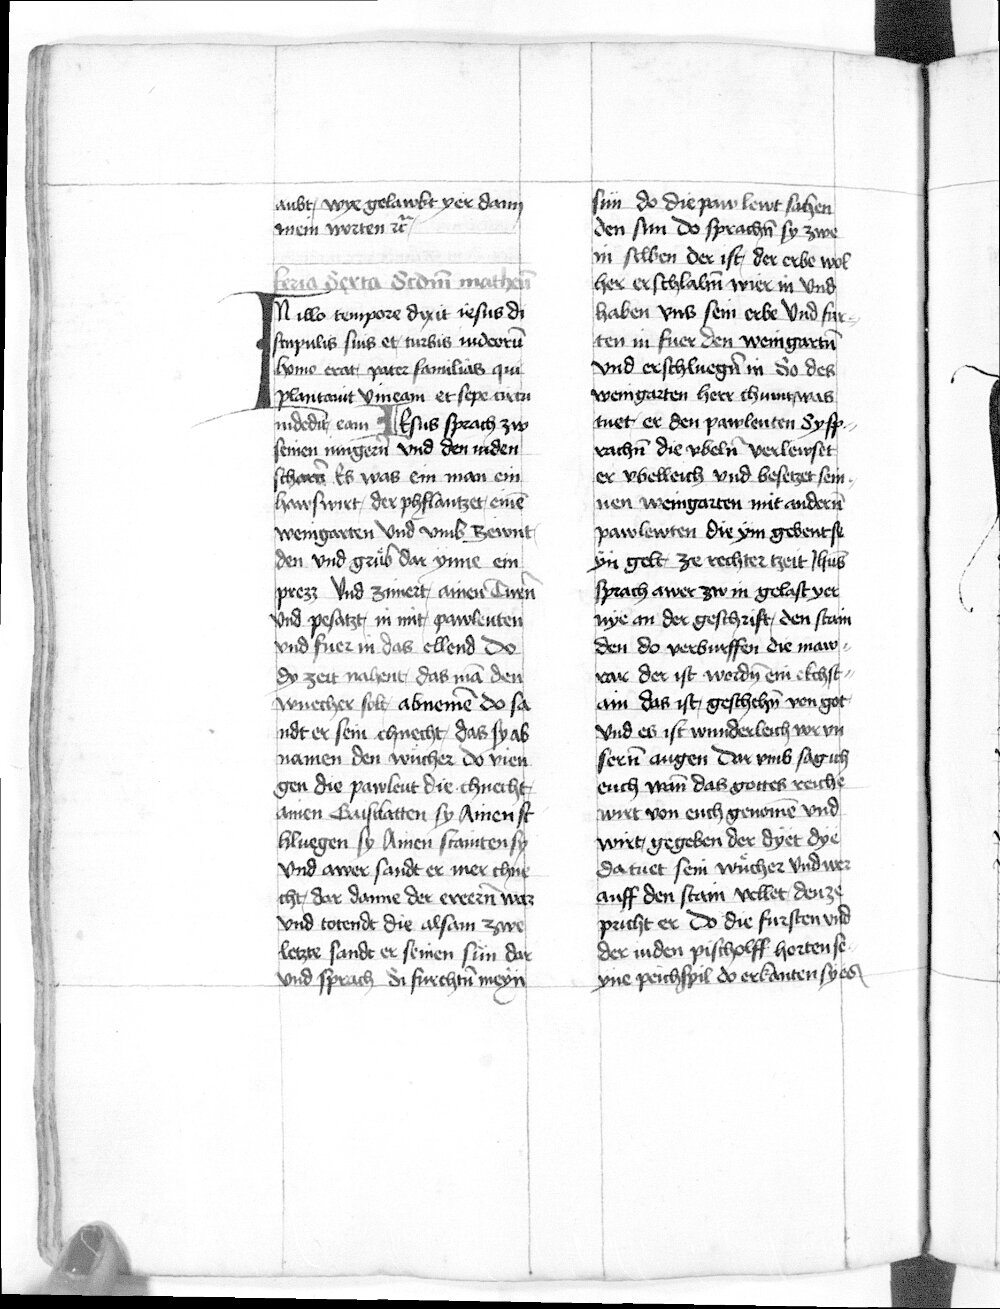 aubt wye gelawbt yer dann
mein worten ꝛc̃
feria Sexta Scdm̄ matheū
IN illo tempore dixit iesus di
scipulis suis et turbis iudeorū
homo erat pater familias qui
plantauit vineam et sepe circū
mdedit eam Jesus sprach zw
seinen iungern̄ vnd den iuden
scharn̄ Es was ein man ein
hawswirt der phflantzet einē
weingarten vnd vmb zewnt
den vnd grub dar ynne ein
prezz Vnd zimert ainen Turn̄
vnd pesatzt in mit pawleuten
vnd fuer in das ellend Do
dy zeit nahent das mā den
wuecher solt abnemē Do sa
ndt er sein chnecht das sy ab
namen den wücher Do vien
gen die pawleut die chnecht
ainen Gaisslatten sy Ainen sc
hluegen sy Ainen stainten sy
Vnd awer sandt er mer chne
cht dar danne der ereern̄ war
Vnd totendt die alsam zwe
letzte sandt er seinen sün dar
vnd sprach Si furchtn̄ meyn
sün do die paw lewt sahen
den sun Do sprachn̄ sy zwe
in selben der ist der erbe wol
her erschlahn̄ wier in Vnd
haben vns sein erbe Vnd für
ten in fuer den weingartn̄
vnd erschluegn̄ in So des
weingarten herr chumt was
tuet er den pawleuten Sy sp
rachn̄ die vbeln̄ verlewset
er vbelleich vnd besetzet sein
nen weingarten mit andern̄
pawlewten die ym gebent se
yn gelt ze rechter tzeit Jhūs
sprach awer zw in gelast yer
nye an der geschrift den stain
den do verburffen die maw
rar der ist wordn̄ ein ekchst
ain das ist geschehn̄ von got
Vnd es ist wunderleich vor vn
sern̄ augen Dar vmb sag ich
euch wan̄ das gottes reiche
wirt von euch genomē vnd
wirt gegeben der dyet dye
da tuet sein wücher Vnd wer
auff den stain vellet den ze
pricht er Do die fursten vnd
der iuden pischolff horten se
yne peichspil do erkanten sy es